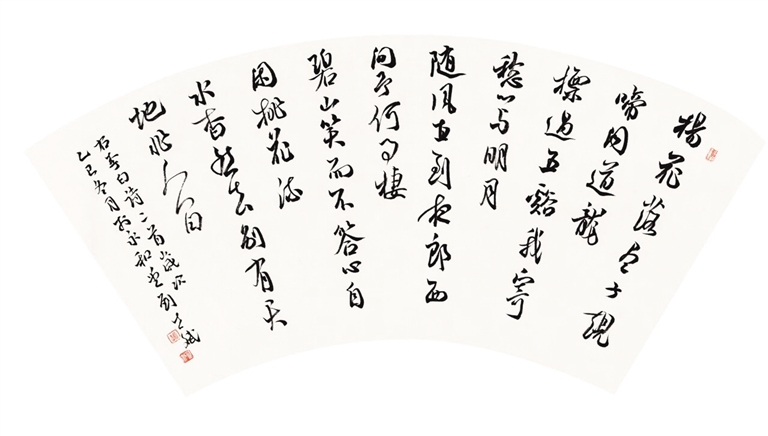 楊花落尽子規
啼闻道龍
標過五谿我寄
愁心与明月
随風直到夜郎西
问予何事棲
碧山笑而不答心自
闲桃花流
水杳然去别有天
地非人间
右李白诗二首歲次
乙巳冬月於永和堂劉斌